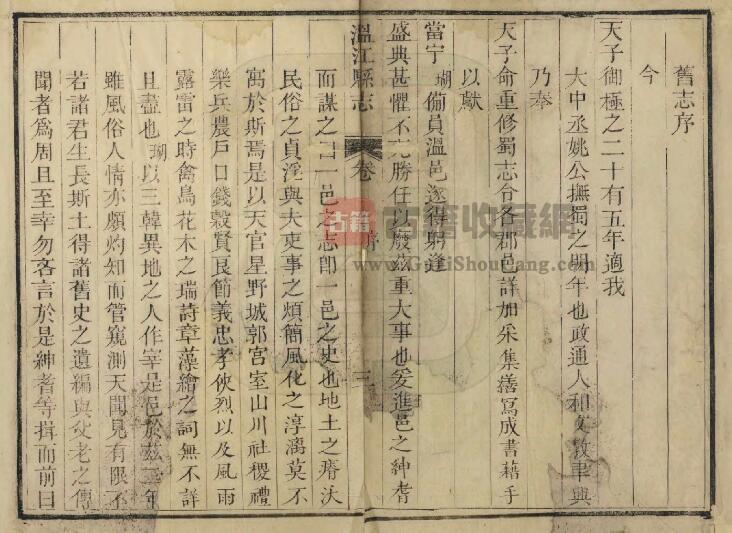 舊志序
今
天子御極之二十有五年適我
大中丞姚公撫蜀之明年也政通人和文教聿興
乃奉
天子命重修蜀志令各郡邑詳加采集繕寫成書藉手
以獻
當宁瑚備員溫邑遂得躬逢
盛典甚懼不克勝任以廢茲重大事也爰進邑之紳耆
溫江縣志
卷
序
三
而謀之曰一邑之志即一邑之史也地土之瘠沃
民俗之貞淫與夫吏事之煩簡風化之淳漓莫不
寓於斯焉是以天官星野城郭宮室山川社稷禮
樂兵農戶口錢穀賢良節義忠孝俠烈以及風雨
露雷之時禽鳥花木之瑞詩章藻繪之詞無不詳
且盡也瑚以三韓異地之人作宰是邑於茲三年
雖風俗人情亦頗灼知而管窺測天聞見有限不
若諸君生長斯土得諸舊史之遺編與父老之傳
聞者為周且至幸勿吝言於是紳耆等揖而前曰
古籍
古籍收藏網
www.GuJiShouCang.com